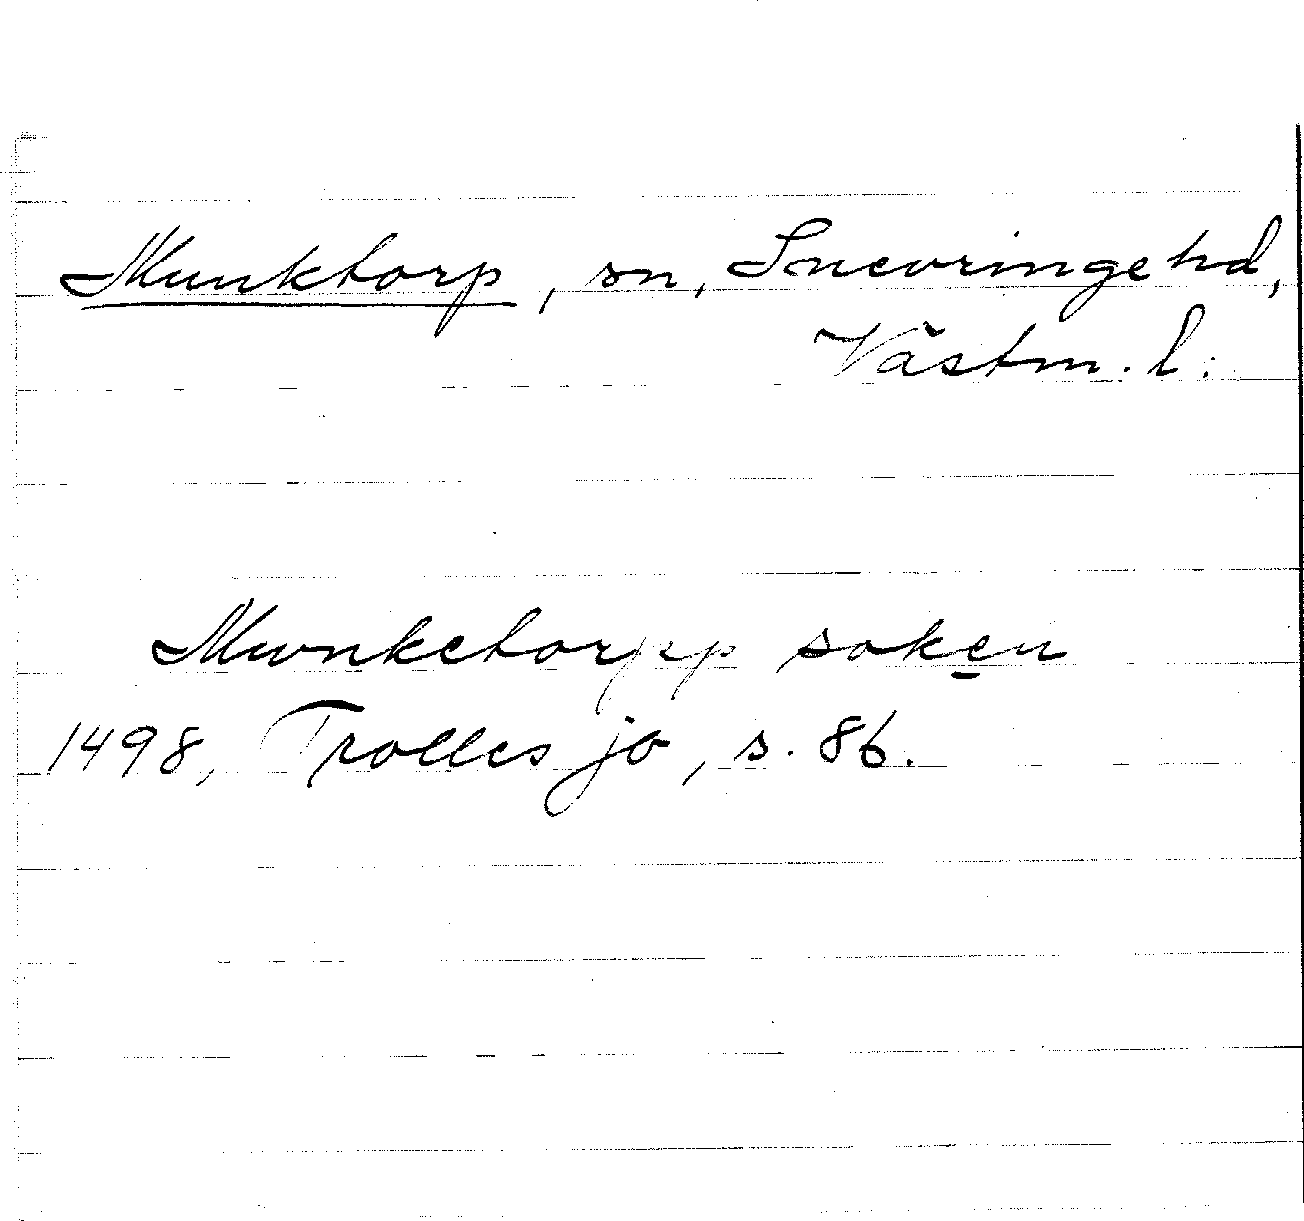 Munktorp, sn, Snevringe hd,
Västm. l.
Mwnketorpp soken
1498, Trolles jb, s. 86.